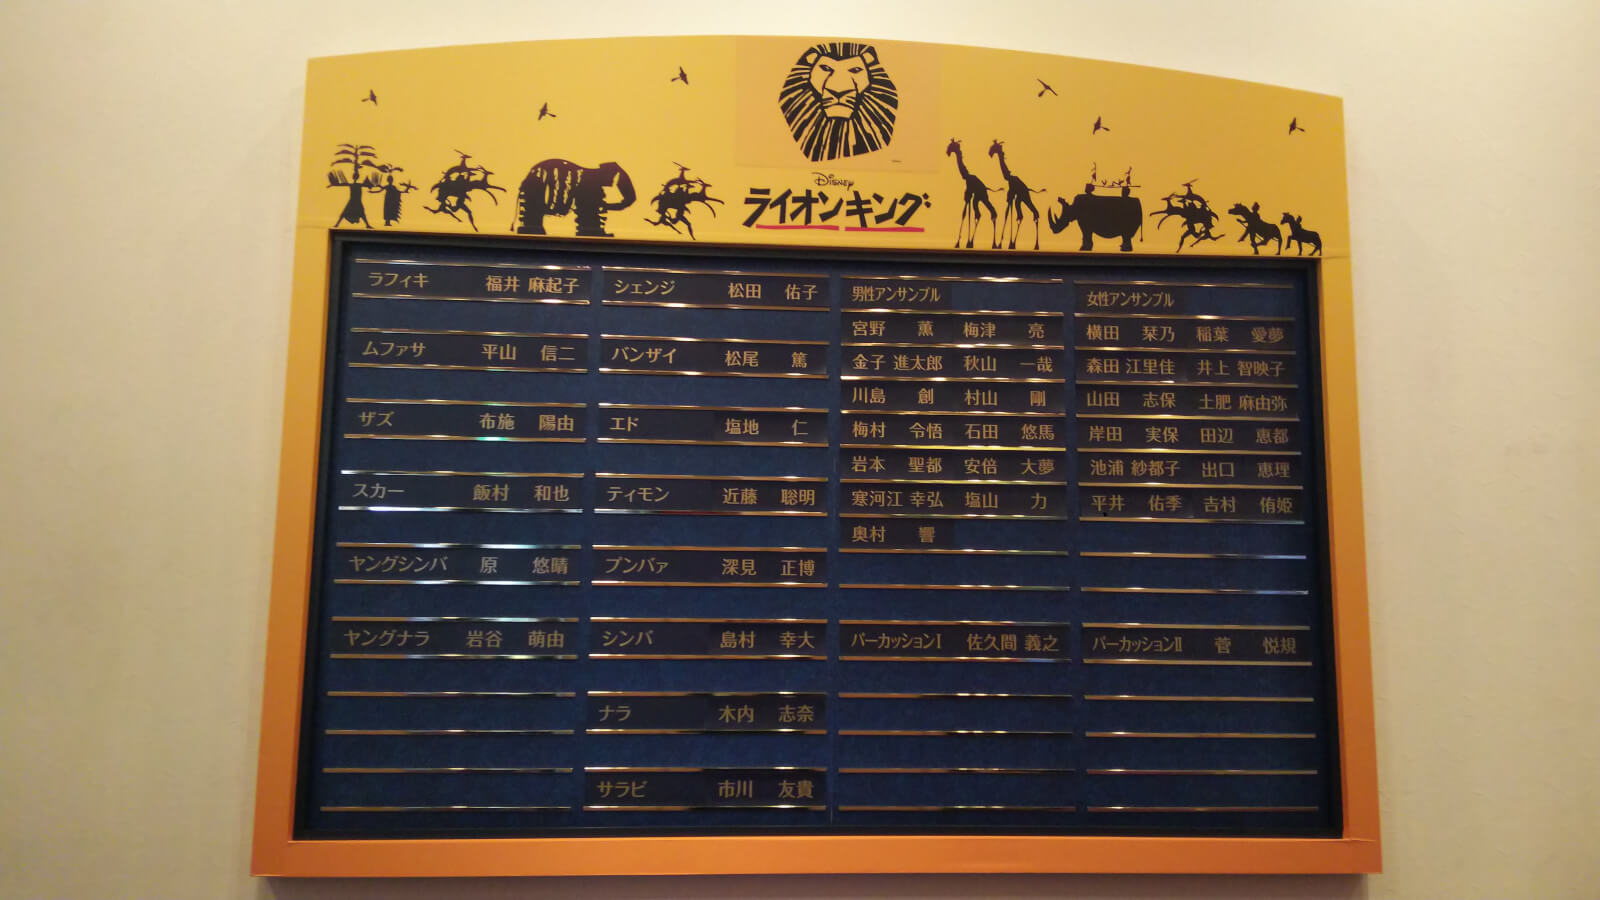 Disney
ライオンキング
ラフィキ 福井 麻起子
ムファサ 平山 信二
ザズ 布施 陽由
スカー 飯村 和也
ヤングシンバ 原 悠晴
ヤングナラ 岩谷 萌由
シェンジ 松田 佑子
バンザイ 松尾 篤
エド 塩地 仁
ティモン 近藤 聡明
プンバァ 深見 正博
シンバ 島村 幸大
ナラ 木内 志奈
サラビ 市川 友貴
男性アンサンブル
宮野 薫 梅津 亮
金子 進太郎 秋山 一哉
川島 創 村山 剛
梅村 令悟 石田 悠馬
岩本 聖都 安倍 大夢
寒河江 幸弘 塩山 力
奥村 響
パーカッションⅠ 佐久間 義之
女性アンサンブル
横田 栞乃 稲葉 愛夢
森田 江里佳 井上 智映子
山田 志保 土肥 麻由弥
岸田 実保 田辺 恵都
池浦 紗都子 出口 恵理
平井 佑季 吉村 侑姫
パーカッションⅡ 菅 悦規